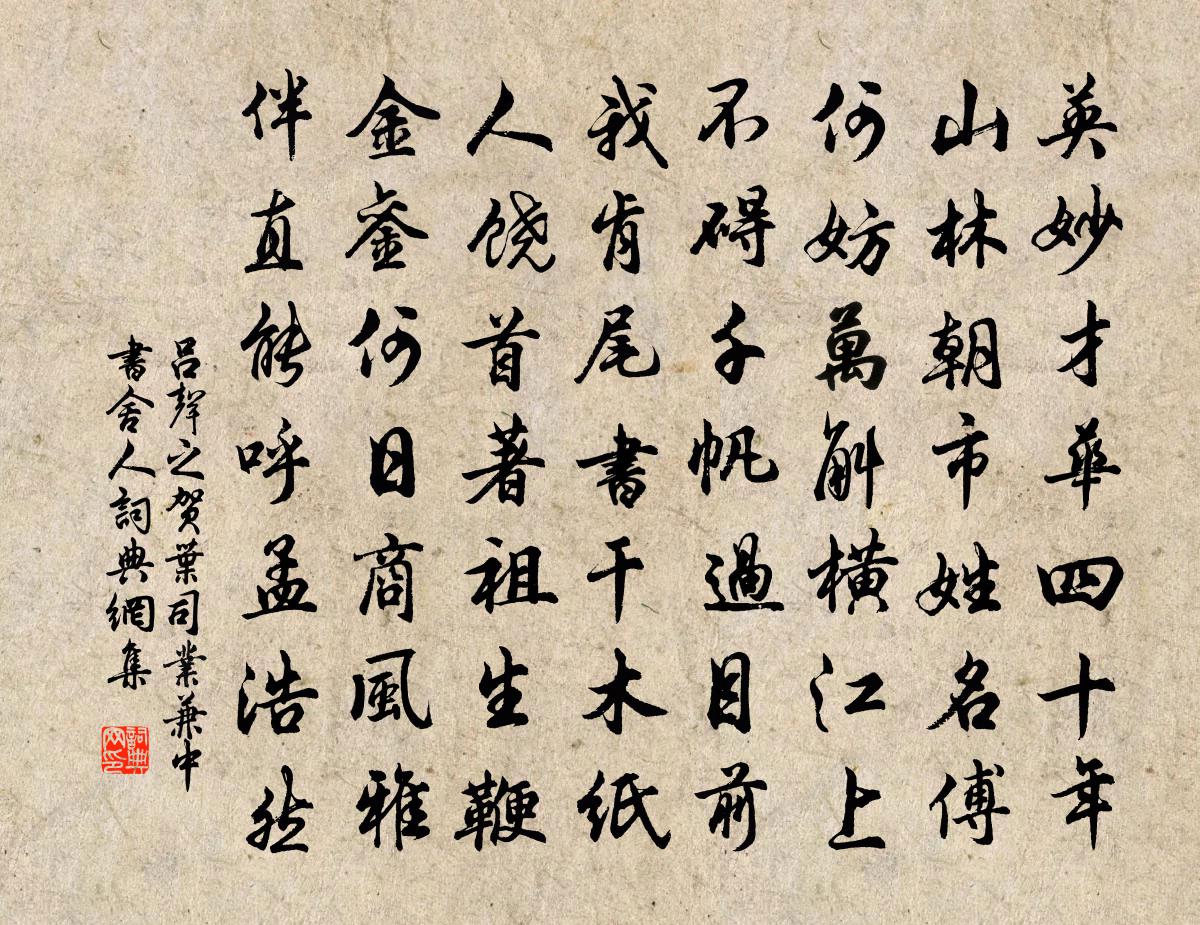 英妙才華四十年
山林朝市姓名傅
何妨萬斛橫江上
不碍千帆過目前
我肯尾書干木紙
人饶首著祖生鞭
金銮何日商風雅
伴直能呼孟浩然
吕聲之贺葉司業兼中
書舍人詞典網集
詞典
网印